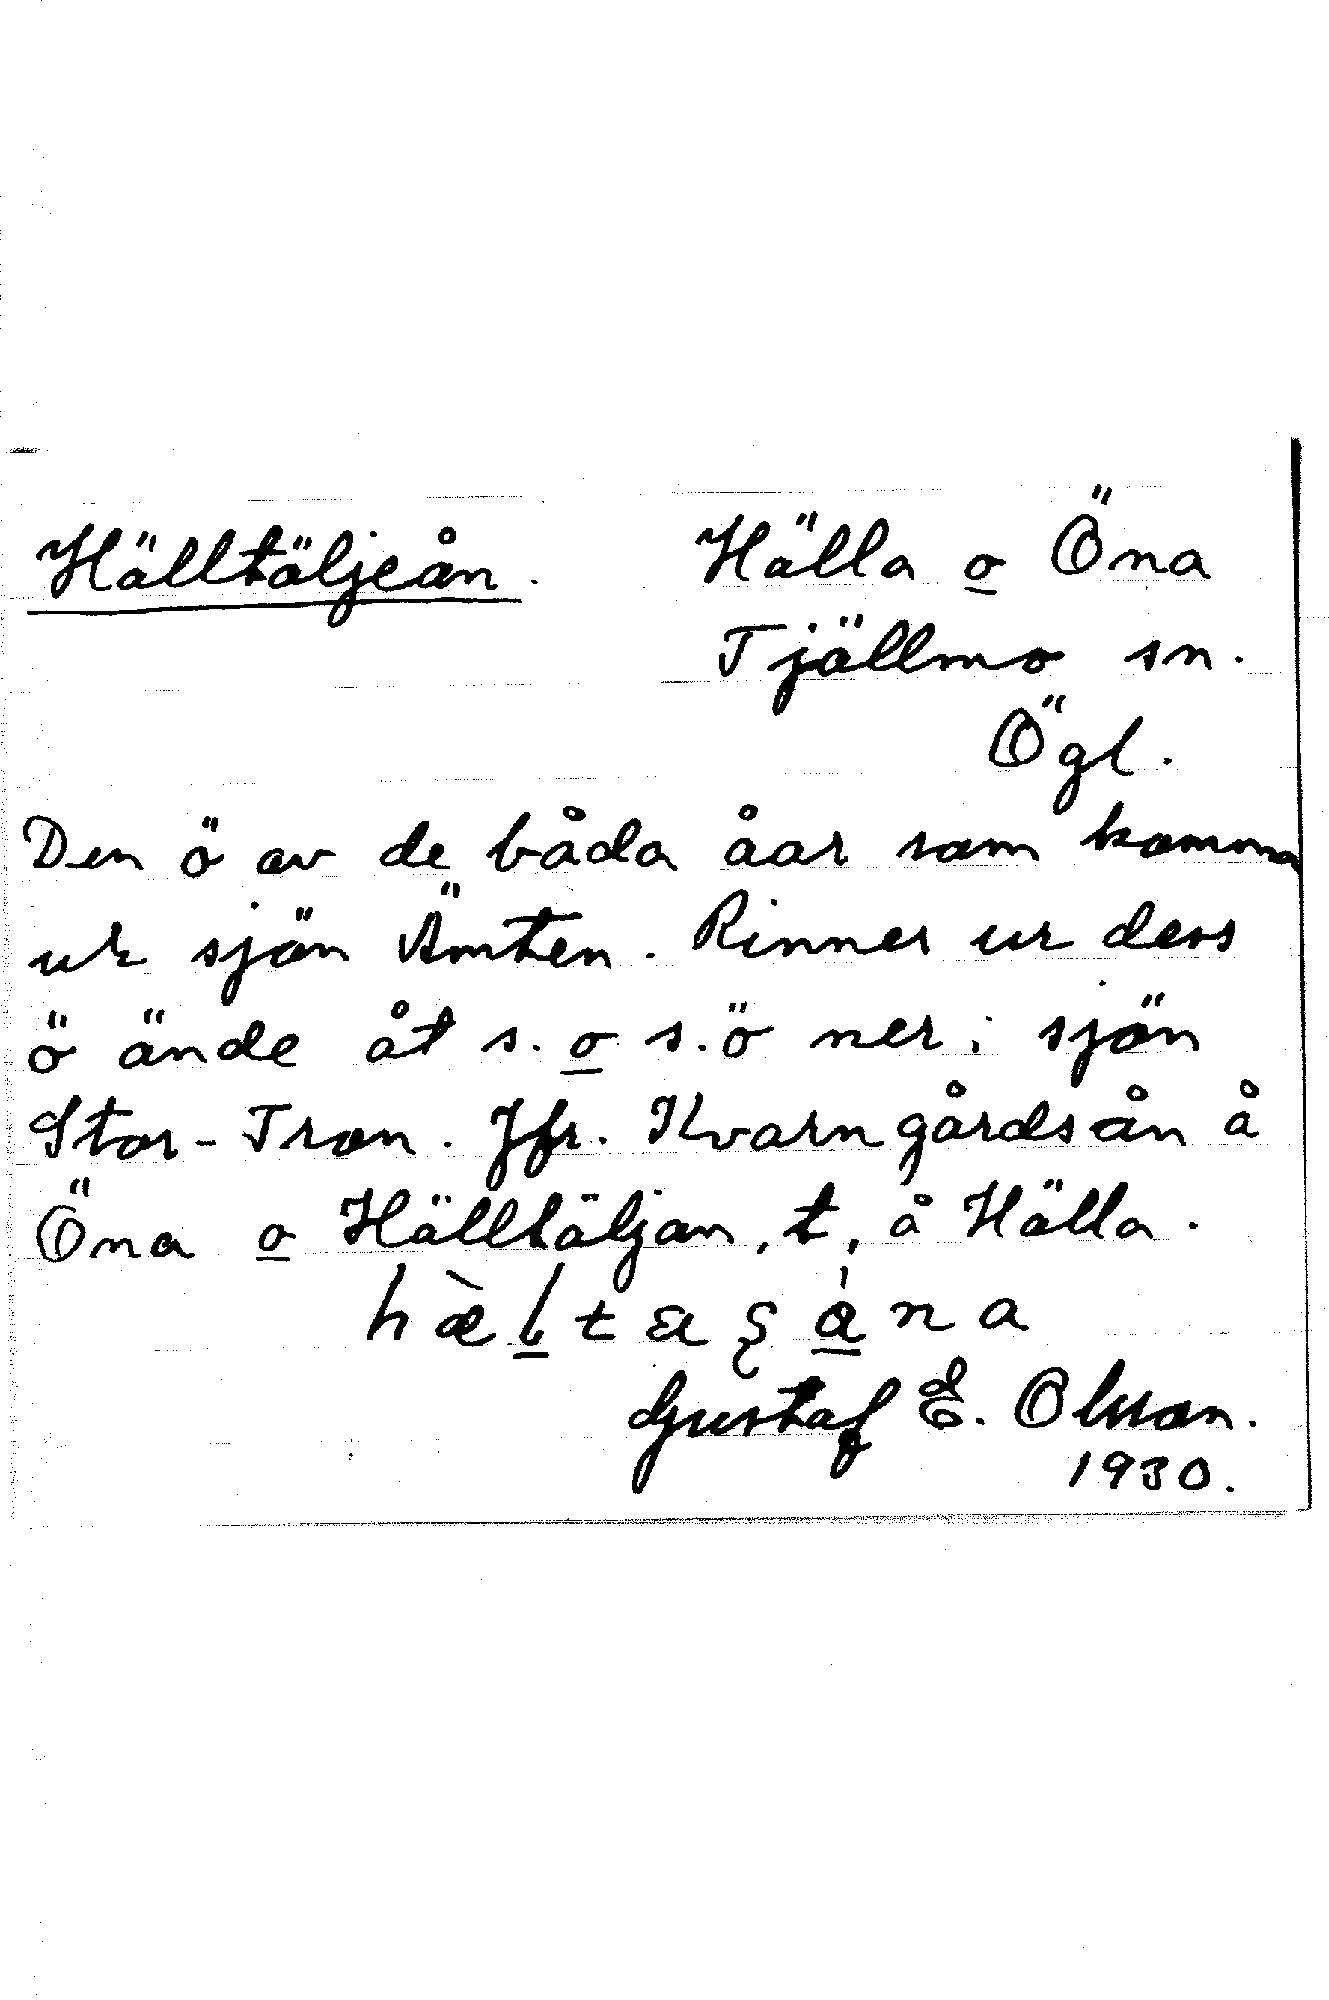 Hälltäljeån. Hälla o Öna
Tjällmo sn.
Ögl.
Den ö av de båda åar som komma
ur sjön Ämten. Rinner ur dess
ö ände åt s. o s.ö ner i sjön
Stor-Tron. Jfr. Kvarngårdsån å
Öna o Hälltäljan, t, å Hälla.
Gustaf E. Olsson.
1930.